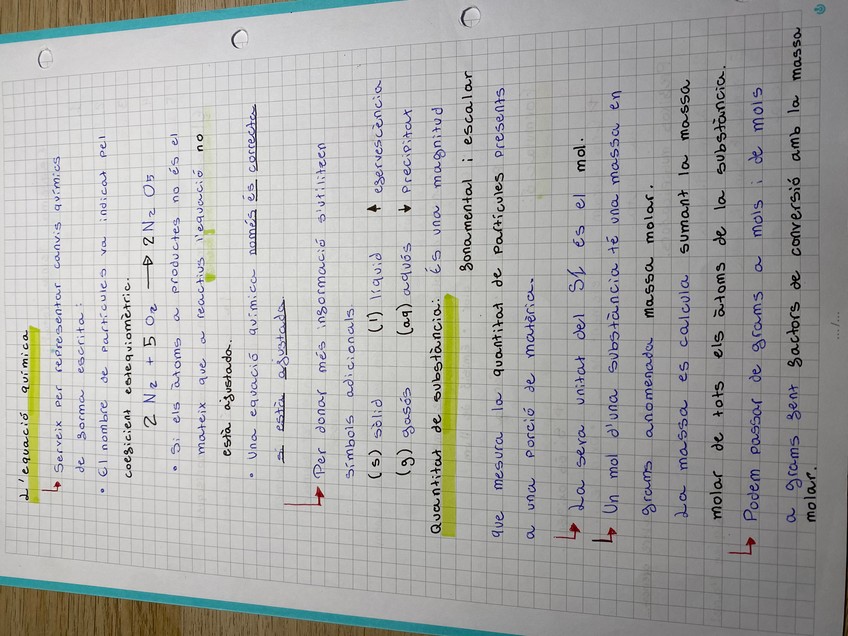 L'equació química
↳ Serveix per representar canvis químics
de forma escrita:
• El nombre de partícules va indicat pel
coeficient estequiomètric.
2 N₂ + 5 O₂ → 2 N₂ O₅
• Si els àtoms a productes no és el
mateix que a reactius l'equació no
està ajustada.
• Una equació química només és correcta
si està ajustada.
↳ Per donar més informació s'utilitzen
símbols adicionals.
(s) sòlid (l) líquid ↑ efervescència
(g) gasós (aq) aquós ↓ Precipitat
Quantitat de substància: És una magnitud
fonamental i escalar
que mesura la quantitat de partícules presents
a una porció de matèria.
↳ La seva unitat del SI és el mol.
↳ Un mol d'una substància té una massa en
grams anomenada massa molar.
La massa es calcula sumant la massa
molar de tots els àtoms de la substància.
↳ Podem passar de grams a mols i de mols
a grams fent factors de conversió amb la massa
molar.
.../...